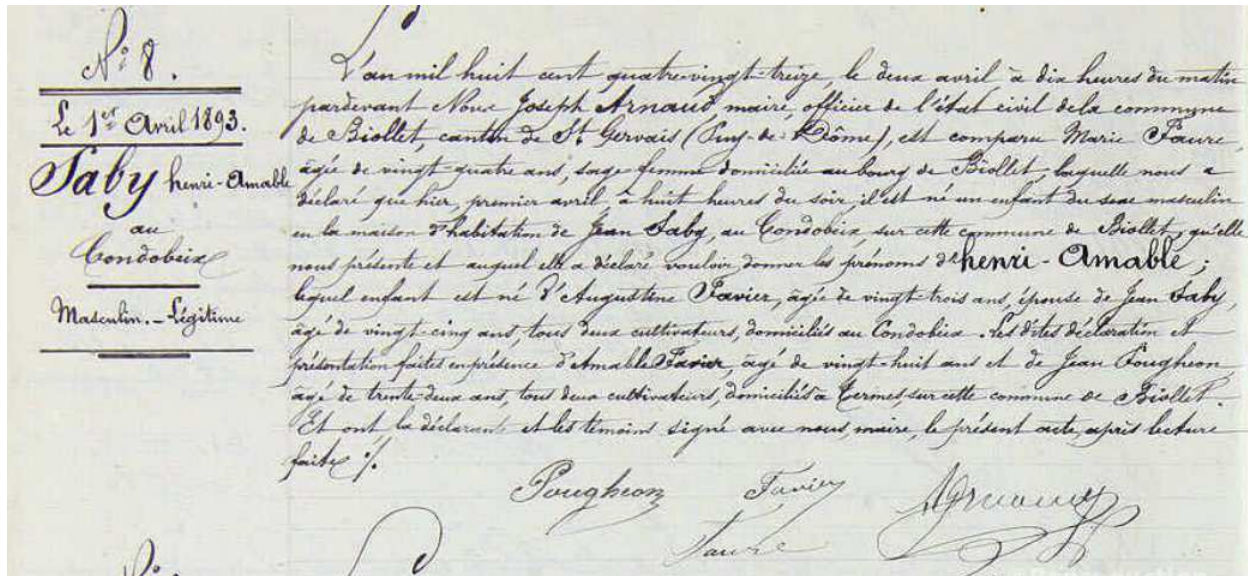 N° 8.
Le 1er Avril 1893.
Saby henri-Amable
au
Condobeix
Masculin. - Légitime
L'an mil huit cent quatre-vingt-treize, le deux avril à dix heures du matin
pardevant Nous Joseph Arnaud, maire, officier de l'état civil de la commune
de Biollet, canton de St Gervais (Puy-de-Dôme), est comparu Marie Faure,
âgée de vingt-quatre ans, sage-femme domiciliée au bourg de Biollet, laquelle nous a
déclaré que hier, premier avril, à huit heures du soir, il est né un enfant du sexe masculin
en la maison d'habitation de Jean Saby, au Condobeix, sur cette commune de Biollet, qu'elle
nous présente et auquel elle a déclaré vouloir donner les prénoms d'henri-Amable ;
lequel enfant est né d'Augustine Favier, âgée de vingt-trois ans, épouse de Jean Saby,
âgé de vingt-cinq ans, tous deux cultivateurs, domiciliés au Condobeix. Les dites déclaration et
présentation faites en présence d'Amable Favier, âgé de vingt-huit ans et de Jean Pougheon
âgé de trente-deux ans, tous deux cultivateurs, domiciliés à Termes, sur cette commune de Biollet.
Et ont la déclarante et les témoins signé avec nous, maire, le présent acte, après lecture
faite ./.
Pougheon Favier Arnaud
Faure
N°